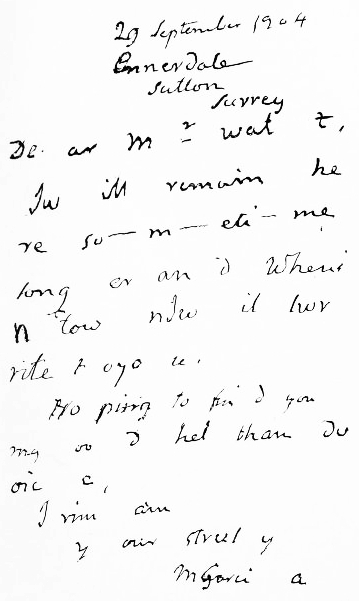 29 September 1904
Ennerdale
Sutton
Surrey
De ar Mr wat t,
Iw ill remain he
re so—m—eti—me
long er an d When i
n tow nIw il lwr
rite t oyo u.
Ho ping to fin d you
in g oo d hel than dv
oic e,
I rem ain
y our strul y
MGarci a